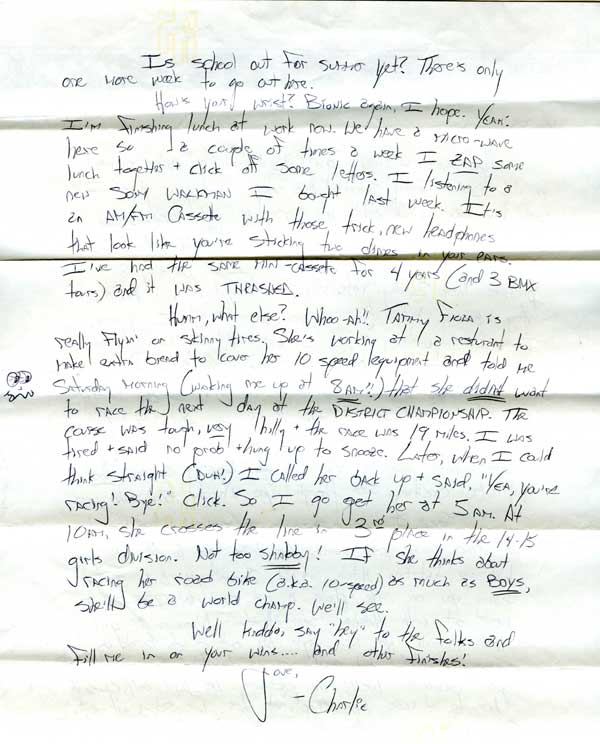 Is school out for summer yet? There's only
one more week to go out here.
How's your wrist? Bionic again, I hope. Yeah!
I'm finishing lunch at work now. We have a micro-wave
here so a couple of times a week I ZAP some
lunch together + click off some letters. I listening to a
new Sony WALKMAN I bought last week. It's
an AM/FM Cassette with those trick, new headphones
that look like you're sticking two dimes in your ears.
I've had the same mini-cassette for 4 years (and 3 BMX
tours) and it was THRASHED.
Humm, what else? Whoo-Ah!! Tammy is
really flyin' on skinny tires. She's working at a resturant to
make extra bread to cover her 10 speed equipment and told me
Saturday Morning (waking me up at 8AM!!) that she didn't want
to race the next day at the DISTRICT CHAMPIONSHIP. The
course was tough, very hilly + the race was 19 miles. I was
tired + said no prob + hung up to snooze. Later, when I could
think straight (DUH!) I called her back up + said, "YEA, you're
racing! Bye!" Click. So I go get her at 5AM. At
10AM, she crosses the line in 3rd place in the 14-15
girls division. Not too shabby! If she thinks about
racing her road bike (a.k.a. 10-speed) as much as BOYS,
she'll be a world champ. We'll see.
Well kiddo, say "hey" to the folks and
fill me in on your wins.... and other finishes!
Love,
- Charlie